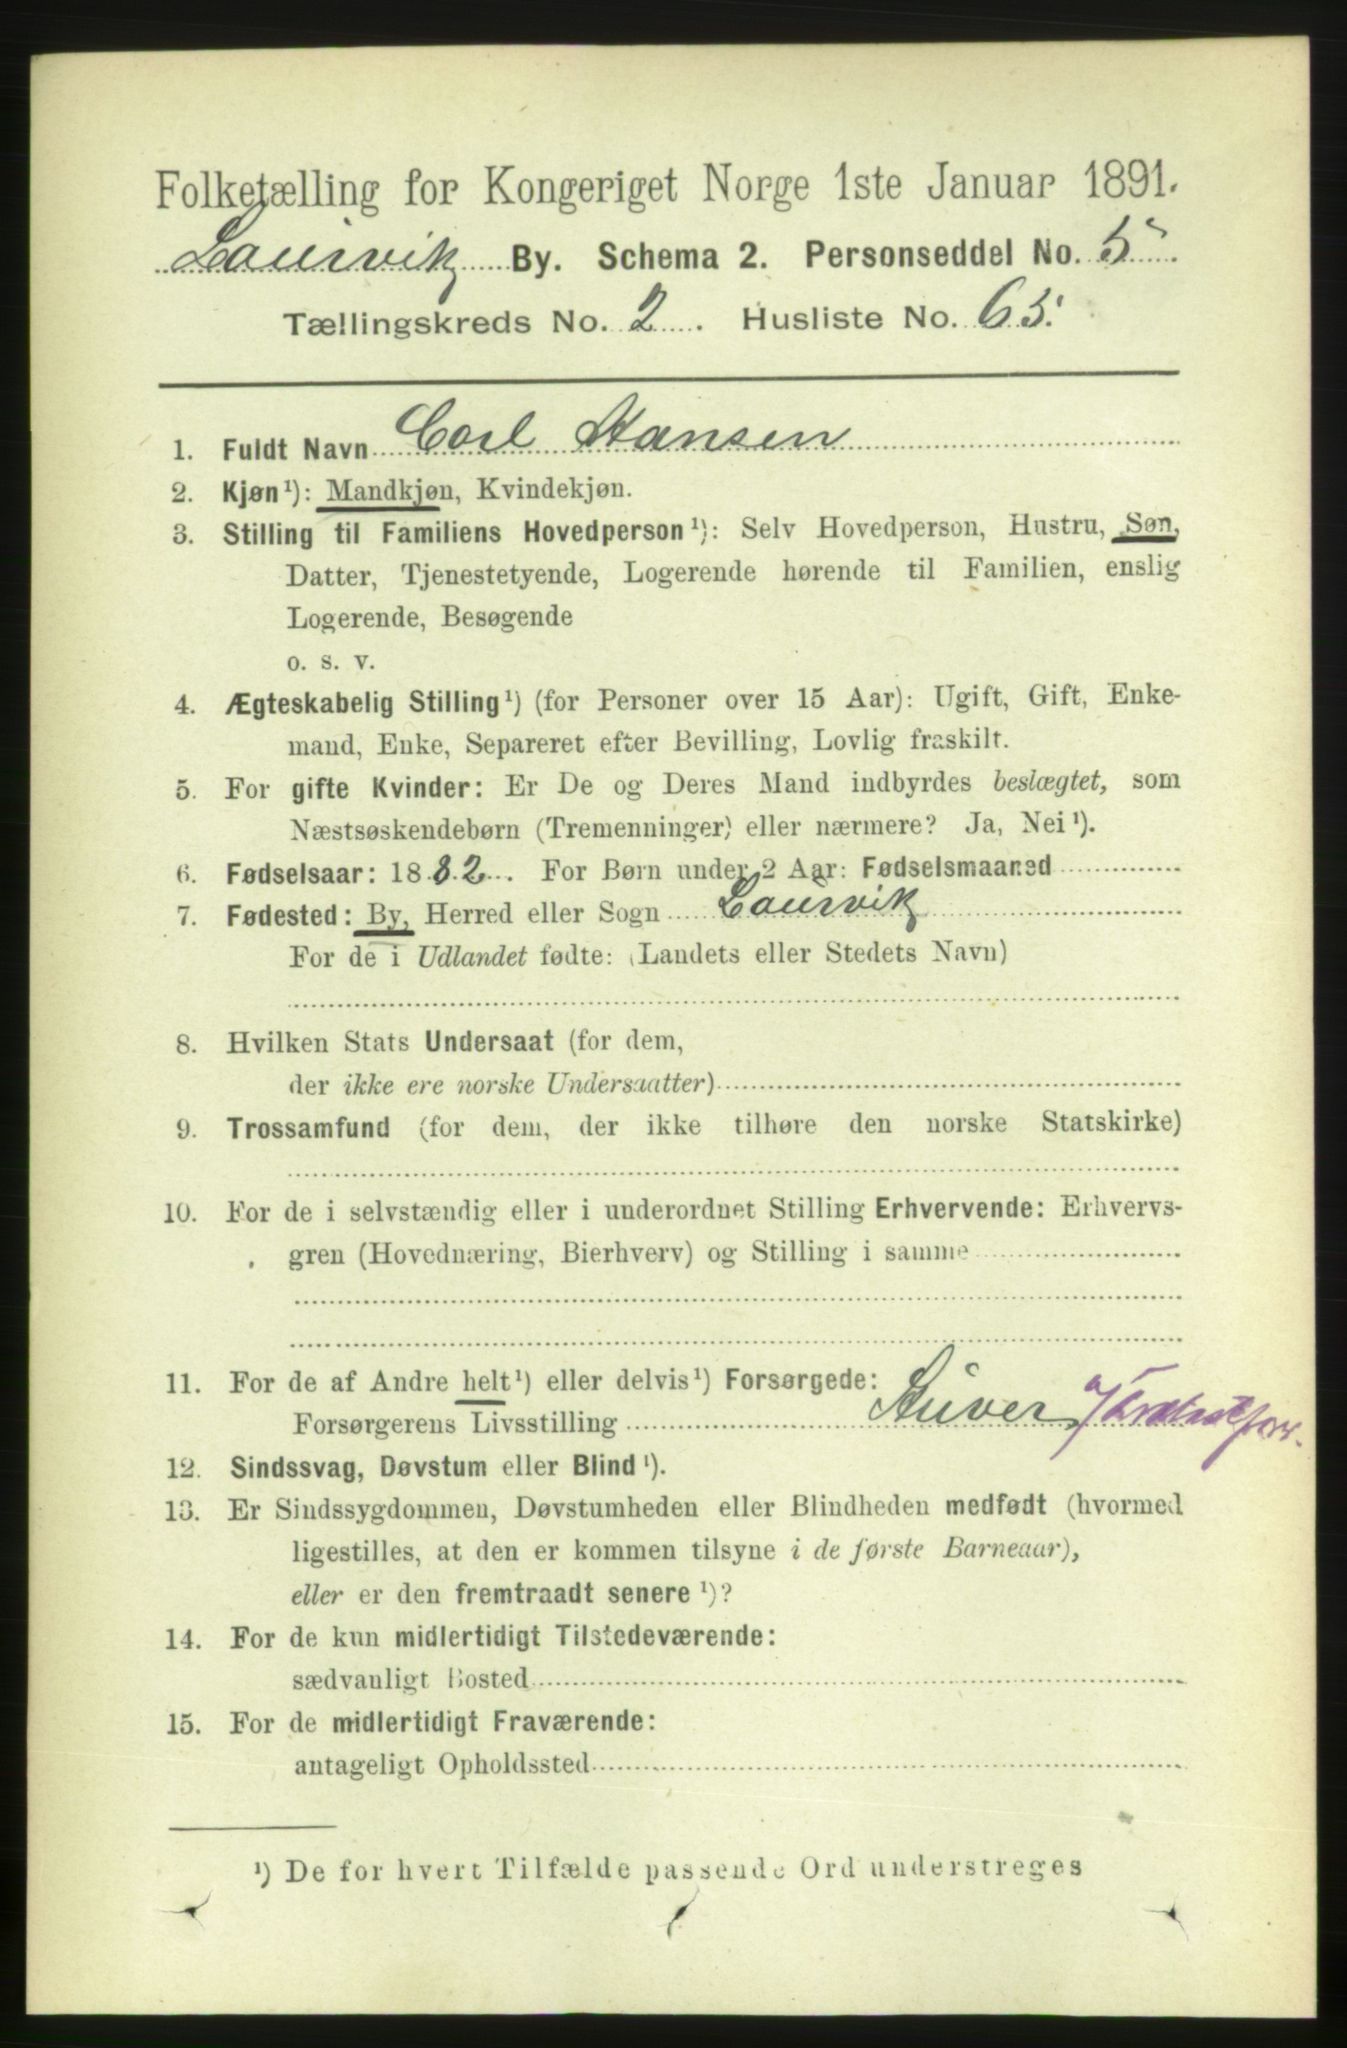 Folketælling for Kongeriget Norge 1ste Januar 1891.
Laurvik By. Schema 2. Personseddel No. 5
Tællingskreds No. 2. Husliste No. 65.
1. Fuldt Navn Carl Hansen
2. Kjøn¹): Mandkjøn, Kvindekjøn.
3. Stilling til Familiens Hovedperson¹): Selv Hovedperson, Hustru, Søn,
Datter, Tjenestetyende, Logerende hørende til Familien, enslig
Logerende, Besøgende
o. s. v.
4. Ægteskabelig Stilling¹) (for Personer over 15 Aar): Ugift, Gift, Enke-
mand, Enke, Separeret efter Bevilling, Lovlig fraskilt.
5. For gifte Kvinder: Er De og Deres Mand indbyrdes beslægtet, som
Næstsøskendebørn (Tremenninger) eller nærmere? Ja, Nei¹).
6. Fødselsaar: 1882. For Børn under 2 Aar: Fødselsmaaned
7. Fødested: By, Herred eller Sogn Laurvik
For de i Udlandet fødte: (Landets eller Stedets Navn)
8. Hvilken Stats Undersaat (for dem,
der ikke ere norske Undersaatter)
9. Trossamfund (for dem, der ikke tilhøre den norske Statskirke)
10. For de i selvstændig eller i underordnet Stilling Erhvervende: Erhvervs-
gren (Hovednæring, Bierhverv) og Stilling i samme
11. For de af Andre helt¹) eller delvis¹) Forsørgede:
Forsørgerens Livsstilling Stüver
12. Sindssvag, Døvstum eller Blind¹).
13. Er Sindssygdommen, Døvstumheden eller Blindheden medfødt (hvormed
ligestilles, at den er kommen tilsyne i de første Barneaar),
eller er den fremtraadt senere¹)?
14. For de kun midlertidigt Tilstedeværende:
sædvanligt Bosted
15. For de midlertidigt Fraværende:
antageligt Opholdssted
¹) De for hvert Tilfælde passende Ord understreges